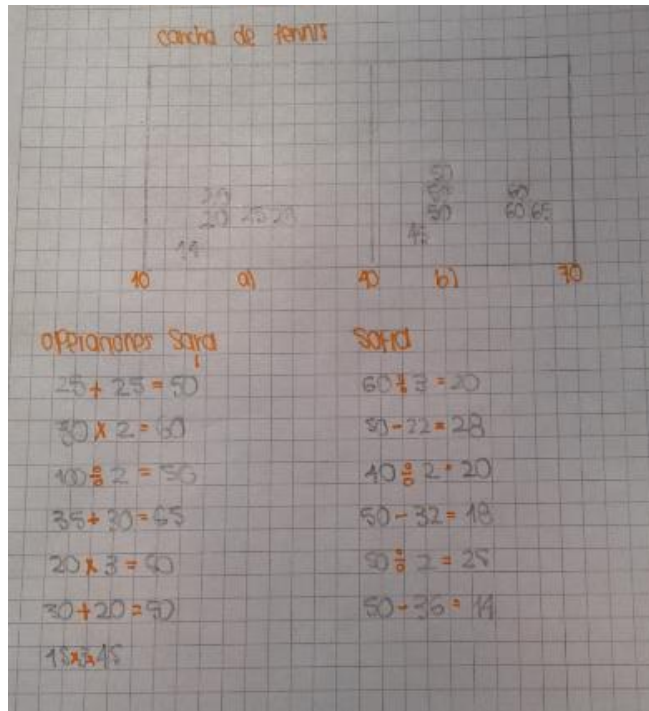 cancha de tennis
20
20 25 20
14
50
60 65
45
10 a) 40 b) 70
operaciones Sara
25 + 25 = 50
30 x 2 = 60
100 ÷ 2 = 50
35 + 30 = 65
20 x 3 = 60
30 + 20 = 50
15 x 3 = 45
Sofia
60 ÷ 3 = 20
50 - 22 = 28
40 ÷ 2 = 20
50 - 32 = 18
50 ÷ 2 = 25
50 - 36 = 14